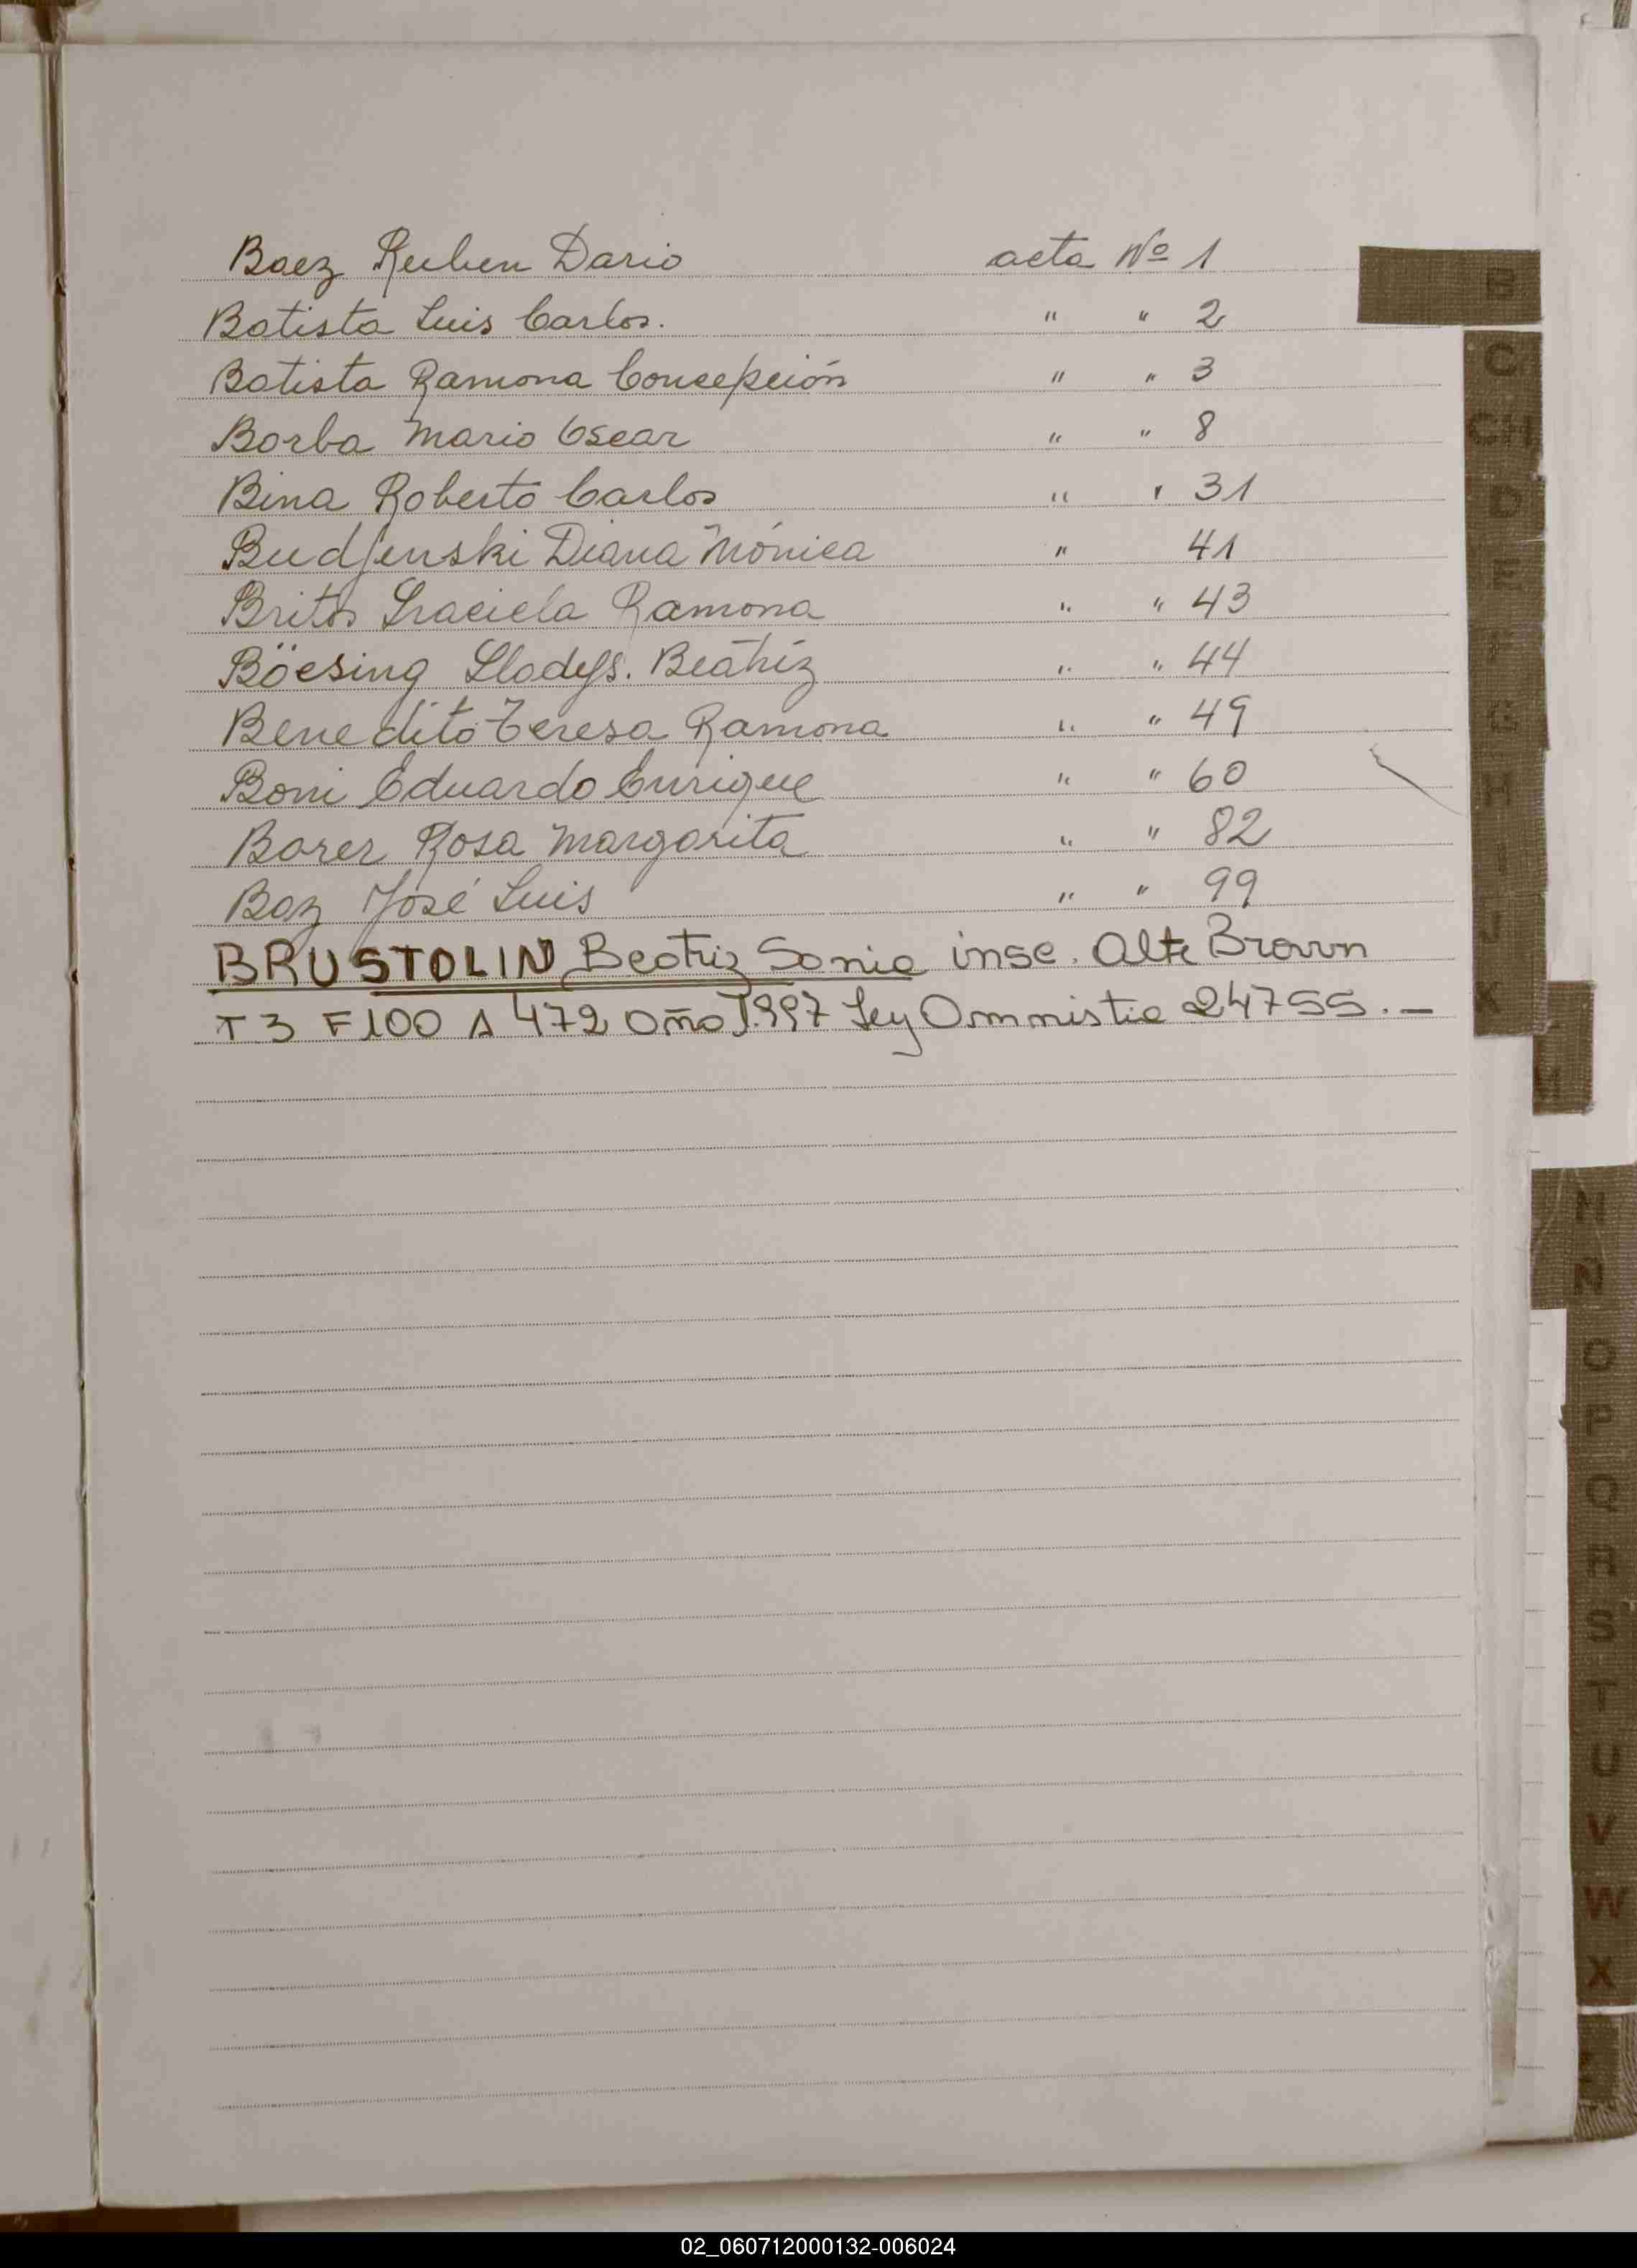 Baez Ruben Dario acta Nº 1
Batista Luis Carlos. " " 2
Batista Ramona Concepción " " 3
Borba Mario Oscar " " 8
Bina Roberto Carlos " " 31
Budjenski Diana Mónica " 41
Britos Graciela Ramona " " 43
Böesing Gladys. Beátriz " " 44
Benedito Teresa Ramona " " 49
Boni Eduardo Enrique " " 60
Borer Rosa Margarita " " 82
Baz José Luis " " 99
BRUSTOLIN Beatriz Sonia insc. Alte Brown
T 3 F 100 A 472 Año 1.997 Ley Ammistia 24755.-
B
C
CH
D
E
F
G
H
I
J
K
M
N
N
O
P
Q
R
S
T
U
V
W
X
Z
02_060712000132-006024